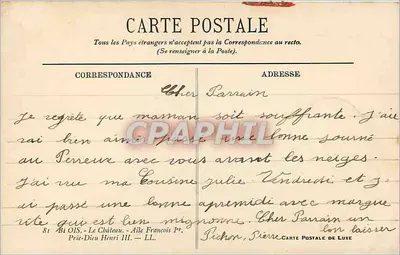 CARTE POSTALE
Tous les Pays étrangers n'acceptent pas la Correspondance au recto.
(Se renseigner à la Poste).
CORRESPONDANCE
ADRESSE
Cher Parrain
Je regrete que maman soit souffrante. J'aie
rai bien aimé passé une bonne journé
au Perreux avec vous avant les neiges.
J'ai vue ma Cousine julie Vendredi et j
ai passé une bonne apremidi avec margue
rite qui est bien mignonne. Cher Parrain un
bon baisser
Pichon Pierre
CPAPHIL
81 BLOIS. - Le Château. - Aile François Ier.
Prie-Dieu Henri III. — LL.
CARTE POSTALE DE LUXE